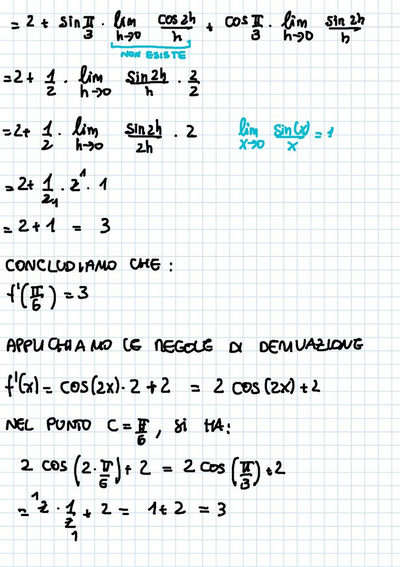 = 2 + sin π/3 · lim h→0 cos 2h / h + cos π/3 · lim h→0 sin 2h / h
NON ESISTE
= 2 + 1/2 · lim h→0 sin 2h / h · 2/2
= 2 + 1/2 · lim h→0 sin 2h / 2h · 2 lim x→0 sin(x) / x = 1
= 2 + 1/2 · 2 · 1
= 2 + 1 = 3
CONCLUDIAMO CHE :
f'(π/6) = 3
APPLICHIAMO LE REGOLE DI DERIVAZIONE
f'(x) = cos(2x) · 2 + 2 = 2 cos(2x) + 2
NEL PUNTO C = π/6 , SI HA :
2 cos (2 · π/6) + 2 = 2 cos (π/3) + 2
= 2 · 1/2 + 2 = 1 + 2 = 3